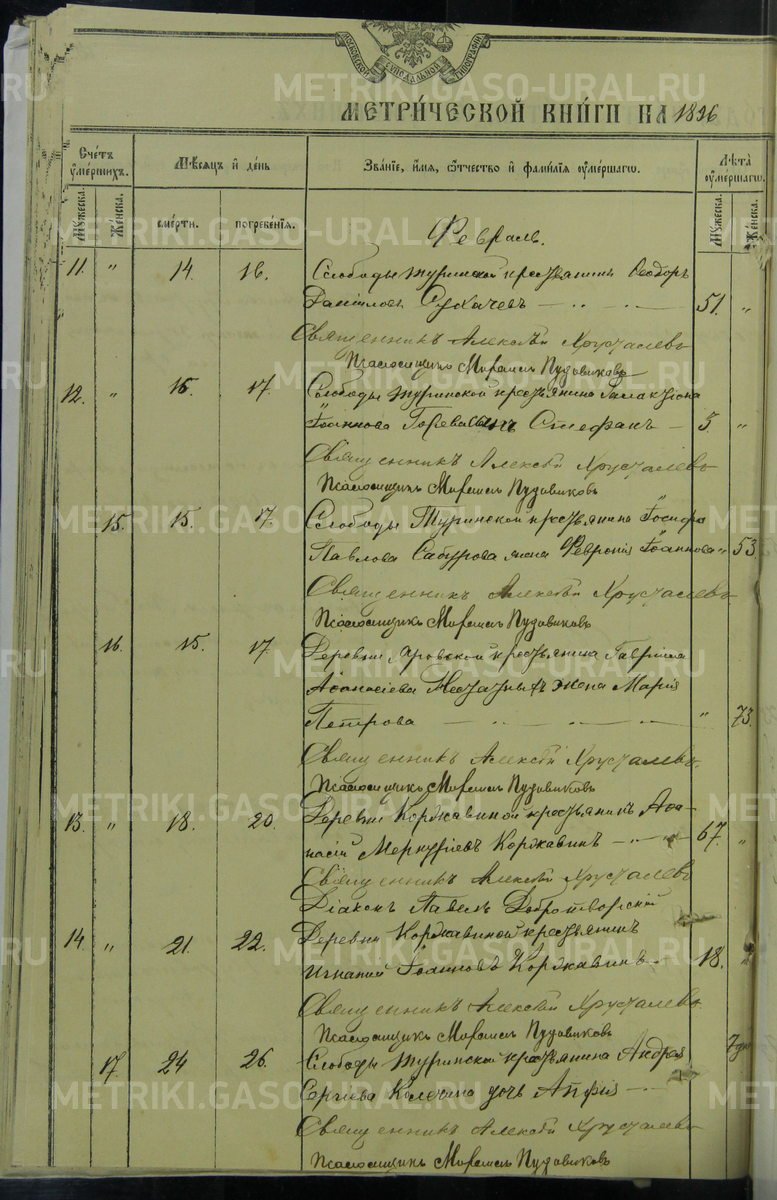 МОСКОВСКОЙ СУНОДАЛЬНОЙ ТИПОГРАФІИ
МЕТРИ́ЧЕСКОЙ КНИ́ГИ НА 1896
Сче́тъ ѹме́ршихъ.
Мѣ́сяцъ и҆ де́нь
Зва́нїе, и҆́мя, ѻ҆́тчество и҆ фами́лїя ѹме́ршагѡ.
Лѣ́та ѹме́ршагѡ.
Мꙋ́жеска.
Же́нска.
сме́рти.
погребе́нїя.
Мꙋ́жеска.
Же́нска.
Февраль.
11. " 14. 16. Слободы Туринской крестьянинъ Ѳеодоръ
Даніиловъ Сухачевъ 51. "
Священникъ Алексѣй Хрусталевъ
Псаломщикъ Михаилъ Пудовиковъ
12. " 15. 17. Слободы Туринской крестьянина Галактіона
Іоаннова сынъ Стефанъ — 3. "
Священникъ Алексѣй Хрусталевъ
Псаломщикъ Михаилъ Пудовиковъ
15. 15. 17. Слободы Туринской крестьянина Іосифа
Павлова Сабурова жена Февронія Іоаннова " 53
Священникъ Алексѣй Хрусталевъ
Псаломщикъ Михаилъ Пудовиковъ
16. 15. 17. Деревни Яровской крестьянина Гавріила
Аѳанасіева жена Марія
Петрова " 73.
Священникъ Алексѣй Хрусталевъ
Псаломщикъ Михаилъ Пудовиковъ
13. " 18. 20. Деревни Коржавиной крестьянинъ Аѳа-
насій Меркуріевъ Коржавинъ 67. "
Священникъ Алексѣй Хрусталевъ
Діаконъ Павелъ Добротворскій
14. " 21. 22. Деревни Коржавиной крестьянинъ
Игнатій Іоанновъ Коржавинъ 18. "
Священникъ Алексѣй Хрусталевъ
Псаломщикъ Михаилъ Пудовиковъ
17. 24 26. Слободы Туринской крестьянина Андрея
Сергіева дочь Апфія
Священникъ Алексѣй Хрусталевъ
Псаломщикъ Михаилъ Пудовиковъ
METRIKI.GASO-URAL.RU